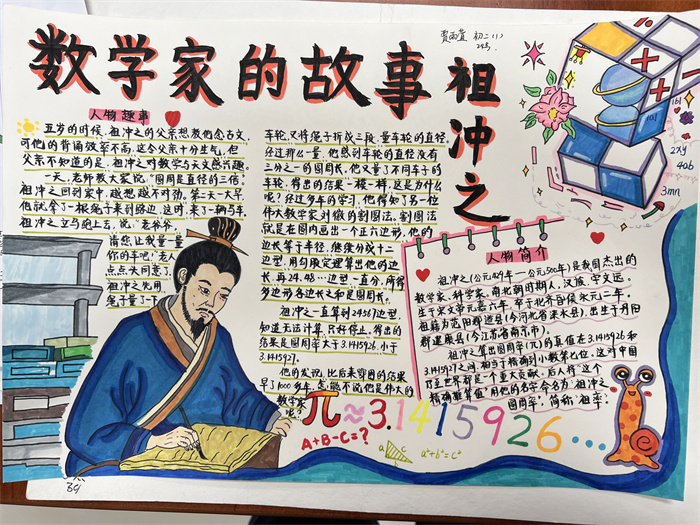 数学家的故事
祖冲之
初二(1)
人物趣事
五岁的时候,祖冲之的父亲想教他念古文,
可他的背诵效率不高,这令父亲十分生气,但
父亲不知道的是,祖冲之对数学与天文感兴趣。
一天,老师教大家说:“圆周是直径的三倍。”
祖冲之回到家中,越想越不对劲。第二天一大早,
他就拿了一根绳子来到路边,这时,来了一辆马车,
祖冲之立马跑上去,说:“老爷爷,
请您让我量一量
你的车吧”老人
点点头同意了。
祖冲之先用
绳子量了一下
车轮,又将绳子折成三段,量车轮的直径,
经过那么一量,他感到车轮的直径没有
三分之一的圆周长。他又量了不同车子的
车轮,得出的结果一模一样,这是为什么
呢?经过多年的学习,他得知了另一位
伟大数学家刘徽的割圆法。割圆法
就是在圆内画出一个正六边形,他的
边长等于半径,继续分成十二
边型,用勾股定理算出他的边
长,再24、48…边型一直分,所得
多边形各边长之和是圆周长。
祖冲之一直算到24567边型,
知道无法计算,只好停止,得出的
结果是圆周率大于3.1415926,小于
3.1415927。
他的发说,比后来穿用的结果
早了1000多年,怎能不说他是伟大的
数学家
呢?
人物简介
祖冲之(公元429年一公元500年)是我国杰出的
数学家,科学家,南北朝时期人,汉族,字文远。
生于宋文帝元嘉六年,卒于北齐昏侯永元二年,
祖籍为范阳郡遒县(今河北省涞水县),出生于丹阳
郡建康县(今江苏省南京市)。
祖冲之算出圆周率(π)的真值在3.1415926和
3.1415927之间,相当于精确到小数第七位,这对中国
乃至世界都是一个重大贡献,后人将“这个
精确推算值”用他的名字命名为“祖冲之
圆周率”,简称“祖率”。
π≈3.1415926…
A+B-C=?
a c
a²+b²=c²
27y
40b
3mn